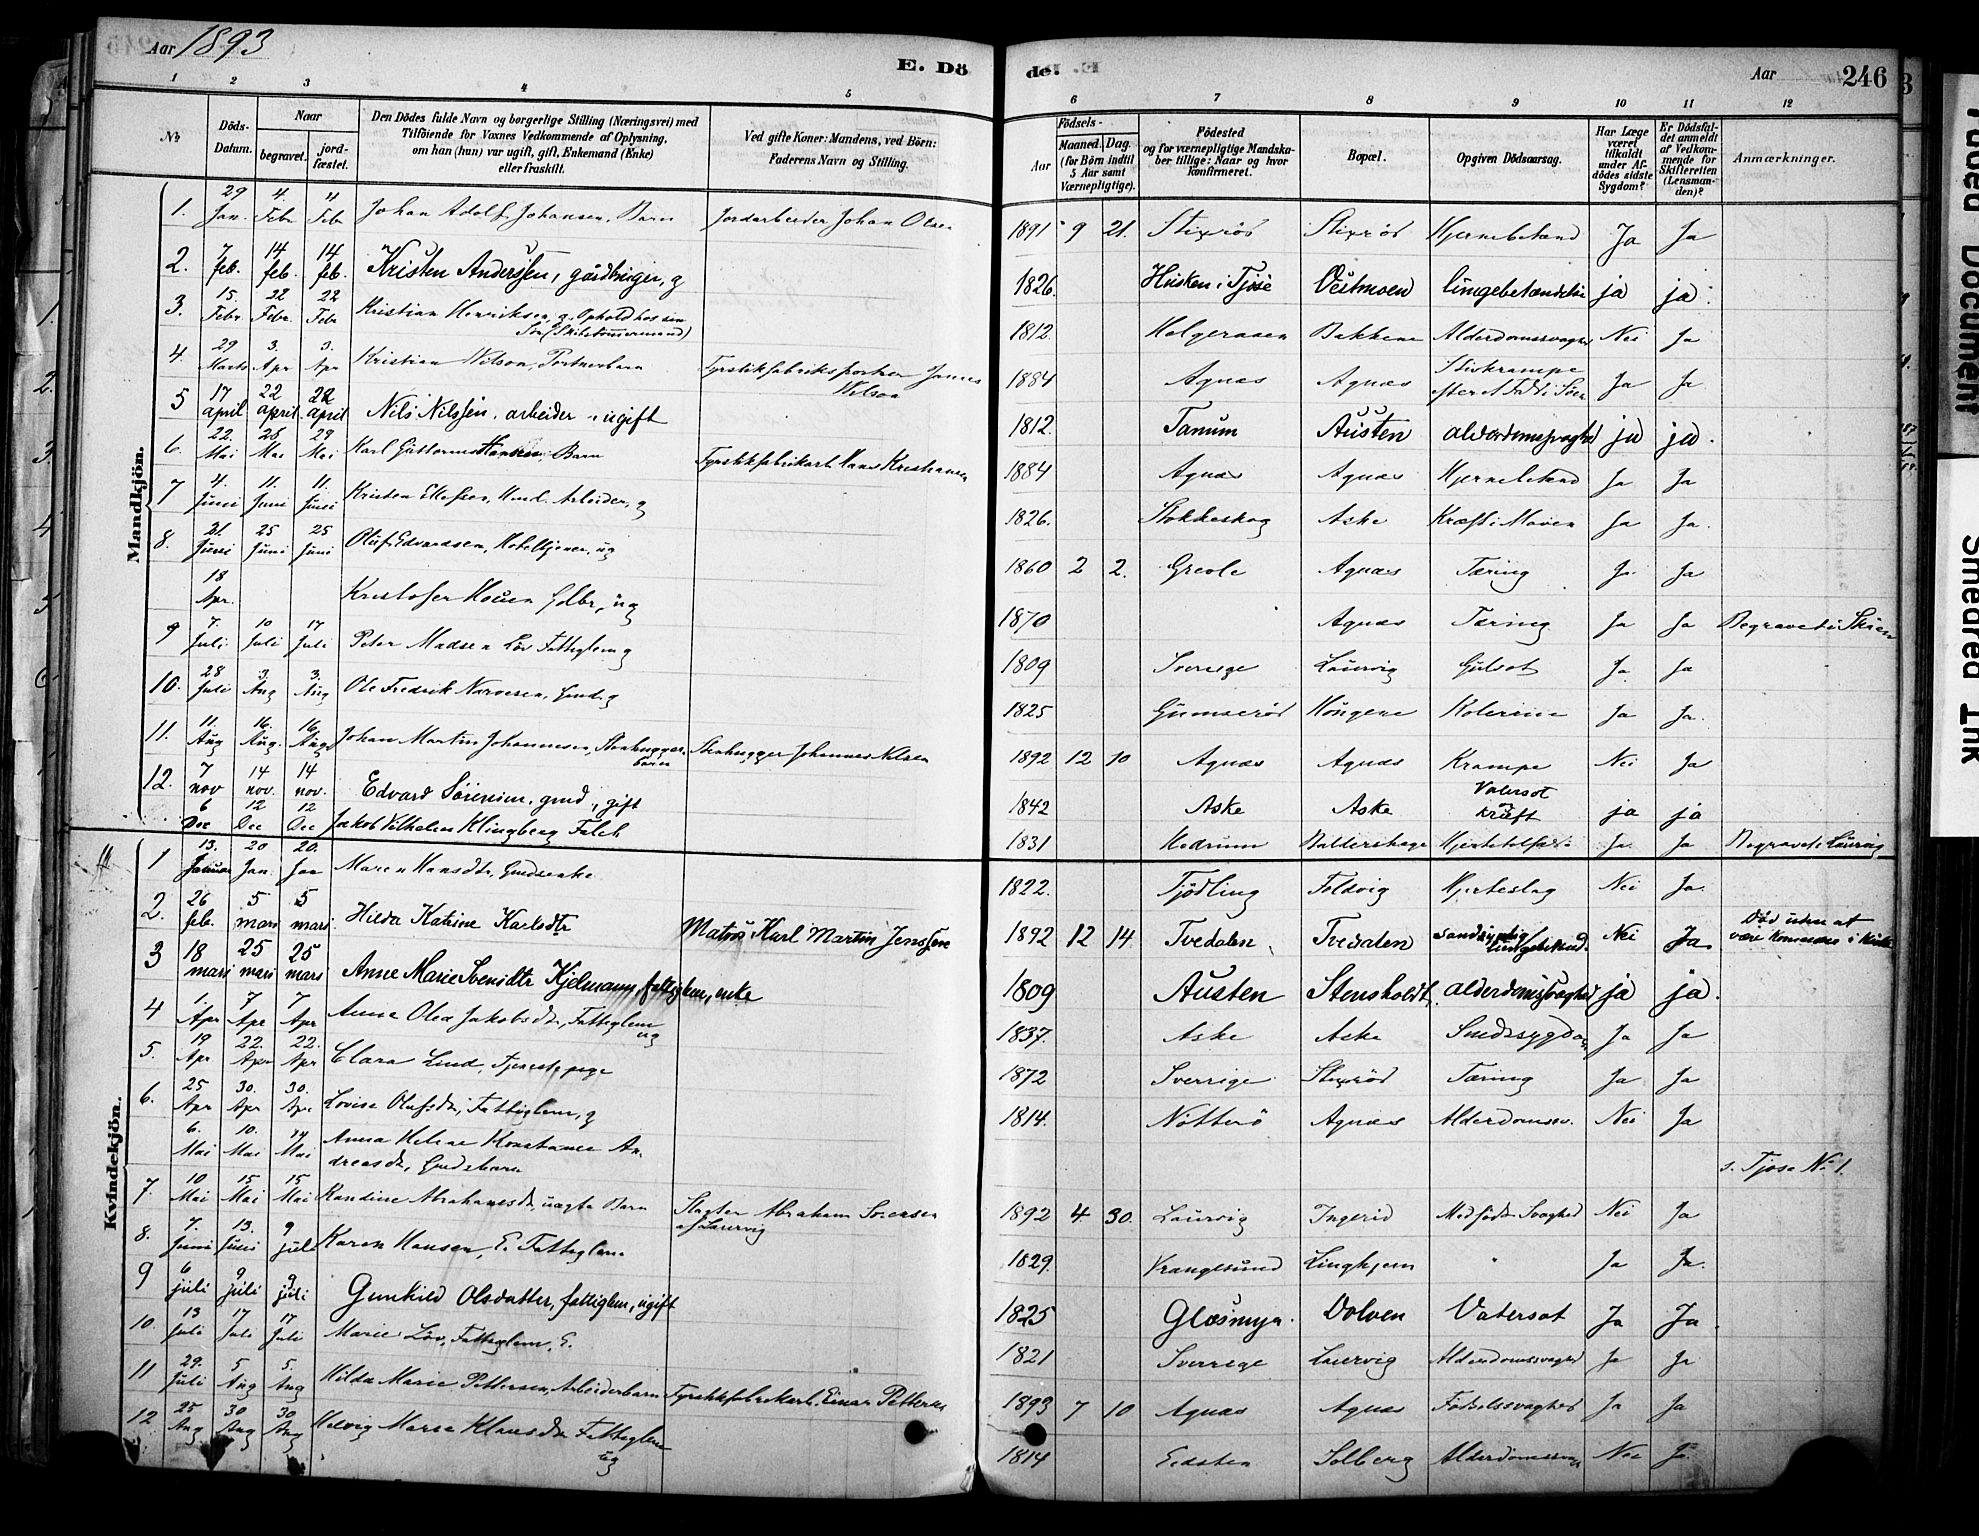 Aar 1893
E. Dö
de.
Aar
246
1 2 3 4 5
6 7 8 9 10 11 12
№
Döds-Datum.
Naar
begravet.
jordfæstet.
Den Dödes fulde Navn og borgerlige Stilling (Næringsvei) med
Tilföiende for Voxnes Vedkommende af Oplysning,
om han (hun) var ugift, gift, Enkemand (Enke)
eller fraskilt.
Ved gifte Koner: Mandens, ved Börn:
Faderens Navn og Stilling.
Födsels-
Aar
Maaned. Dag.
(for Börn indtil
5 Aar samt
Værnepligtige).
Födested
og for værnepligtige Mandska-
ber tillige: Naar og hvor
konfirmeret.
Bopæl.
Opgiven Dödsaarsag.
Har Læge
været
tilkaldt
under Af-
dödes sidste
Sygdom?
Er Dödsfal-
det anmeldt
af Vedkom-
mende for
Skifteretten
(Lensman-
den)?
Anmærkninger.
Mandkjön.
1. 29 Jan. 4. Febr 4 Feb Johan Adolf Johansen, Barn Jordarbeider Johan Olsen 1891 9 21. Stixrös Stixrös Hjernebetænd Ja Ja
2. 7 feb. 14 feb. 14 feb. Kristen Anderssen, gårdbruger, g 1826. Husken i Tjöse Vestmoen lungebetændelse ja ja
3. 15. Febr. 22 Febr. 22 Febr Kristian Henriksen, g. Ophold hos sin
Sön (Skibstømmermand) 1812. Holgeraaen Bakkene Alderdomssvaghed Nei Ja
4. 29 Marts 3. Apr 3. Apr Kristian Nilson, Portnerbarn Fyrstikfabriksportner Jonas
Nilson 1884 Agnæs Agnæs Stivkrampe
efter et Fald i Ja Ja
5 17 april 22 april. 22 april Nils Nilssen, arbeider, ugift 1812. Tanum Austen alderdomssvaghed ja ja.
6. 22. Mai 28 Mai 29 Mai Karl Guttorm Hansen, Barn Fyrstikfabrikarb. Hans Kristiansen 1884 Agnæs Agnæs Hjernebetænd Ja Ja
7 4. Juni 11. Juni 11. Juni Kristen Arbeider, g 1826. Stokkeskog Aske Kræft i Maven Ja Ja.
8. 21. Juni 25 Juni 25 Juni Oluf Edvardsen, Hoteltjener, ug 1860 2 2. Grevle Agnæs Tæring Ja Ja
18 Apr. Kristofer Hauen Gdbr., ug 1870 Agnæs Tæring Ja Ja Begravet i Skien
9 7. Juli 10 Juli 17 Juli Peter Madsen Löv Fattiglem g 1809 Sverige Laurvig Gulsot Ja Ja
10. 28 Juli 3. Aug 3. Aug Ole Fredrik Narvesen, Gmd. g 1825 Gumserød Kongene Kolerine Ja Ja.
11. 11. Aug 16. Aug. 16. Aug Johan Martin Johannesen, Stenhugger-
barn Stenhugger Johannes Nilsen 1892 12 10 Agnæs Agnæs Krampe Nei Ja
12. 7 nov 14 nov. 14 nov. Edvard Sörensen, gmd, gift 1842 Aske Aske Vatersot
og
kræft ja ja
6 Dec 12 Dec 12 Dec Jakob Vilhelm Klingberg Falch 1831 Hedrum Baldershage Ja. Ja Begravet i Laurvig
Kvindekjön.
1 13. Januar 20 Jan. 20. Jan Maren Hansdtr, Gmdsenke 1822. Tjödling Foldvig Hjerteslag Nei Ja.
2. 26 feb. 5 mars 5 mars Hilda Katrine Karlsdtr Matros Karl Martin Jenssen 1892 12 14 Tvedalen Tvedalen sandsynlig
lungebetænd. Nei Ja Död uden at
være i Kirke
3 18 mars 25 mars 25 mars Anne Marie Svensdtr Kjelmann, fattiglem, enke 1809 Austen Stensholdt alderdomssvaghed ja ja.
4 1. Apr 7 Apr 7 Apr Anna Olea Jakobsdtr, Fattiglem
ug 1837. Aske Aske Sindssygdom Ja Ja
5. 19 Apr 22. Apr 22. Apr Clara Lind, Tjenestepige 1872 Sverrige Stixrös Tæring Ja Ja
6. 25 Apr 30. Apr 30. Apr Lovise Olafsdtr, Fattiglem, g 1814. Nötterö Agnæs Alderdomssv. Nei Ja
6. Mai 10. Mai 14 Mai Anna Helene Konstanse An-
dreasdtr, Gmdsbarn s. Tjose No 1.
7. 10 Mai 15 Mai 15 Mai Randine Abrahamsdtr, uægte Barn Slagter Abraham Sörensen
af Laurvig 1892 4. 30. Laurvig Ingerid Medfödt Svaghed Nei Ja
8. 7. Juni 13. Juni 9 juli Karen Hansen, E. Fattiglem 1829. Krangesund Linghjem " Ja Ja.
9 6 juli 9 juli 9 juli Gunhild Olsdatter, fattiglem, ugift 1825 Glæsmyr. Dolven Vatersot Ja Ja.
10. 13 Juli 17 Juli 17 Juli Marie Löv, Fattiglem, E. 1821 Sverrige Laurvig Alderdomssvaghed Ja Ja
11 29. Juli 5 Aug 5. Aug Hilda Marie Pettersen, Arbeiderbarn Fyrstikfabrikarb. Einar Pettersen 1893 7 10 Agnæs Agnæs Födselssvaghed Ja Ja
12 25 Aug 30 Aug 30 Aug Helvig Marie Klausdtr Fattiglem
ug 1814 Eidsten Solberg Alderdomssvag Nei Ja
Faded Document
Smeared Ink